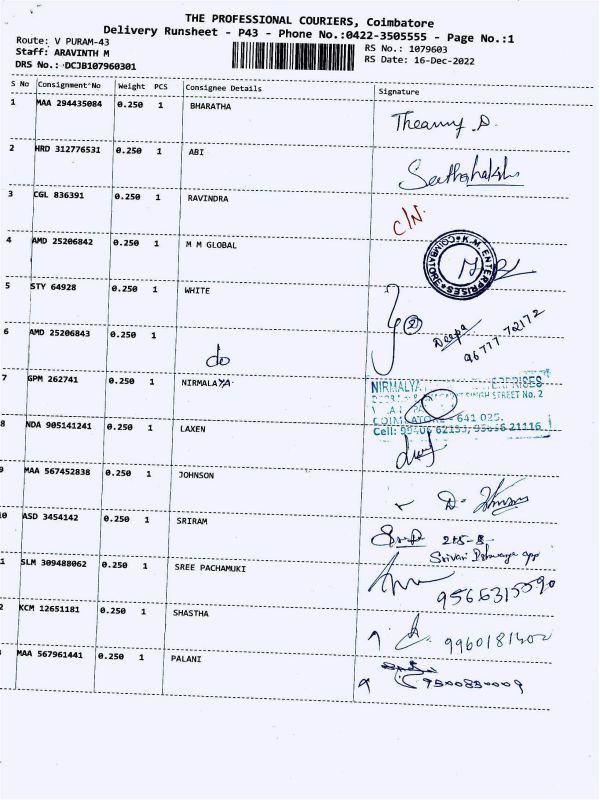 THE PROFESSIONAL COURIERS, Coimbatore
Delivery Runsheet - P43 - Phone No.:0422-3505555 - Page No.:1
Route: V PURAM-43
RS No.: 1079603
Staff: ARAVINTH M
RS Date: 16-Dec-2022
DRS No.: DCJB107960301
S No Consignment No Weight PCS Consignee Details Signature
1 MAA 294435084 0.250 1 BHARATHA
2 HRD 312776531 0.250 1 ABI
3 CGL 836391 0.250 1 RAVINDRA C/N.
4 AMD 25206842 0.250 1 M M GLOBAL K.M. ENTERPRISES COIMBATORE
5 STY 64928 0.250 1 WHITE
Deepa
96777 72172
6 AMD 25206843 0.250 1 do
7 GPM 262741 0.250 1 NIRMALAYA
NIRMALYA ENTERPRISES
SINGH STREET No. 2
COIMBATORE - 641 025.
Cell:
8 NDA 905141241 0.250 1 LAXEN
9 MAA 567452838 0.250 1 JOHNSON
10 ASD 3454142 0.250 1 SRIRAM
Srivari
app
1 SLM 309488062 0.250 1 SREE PACHAMUKI
9566315590
2 KCM 12651181 0.250 1 SHASTHA
MAA 567961441 0.250 1 PALANI